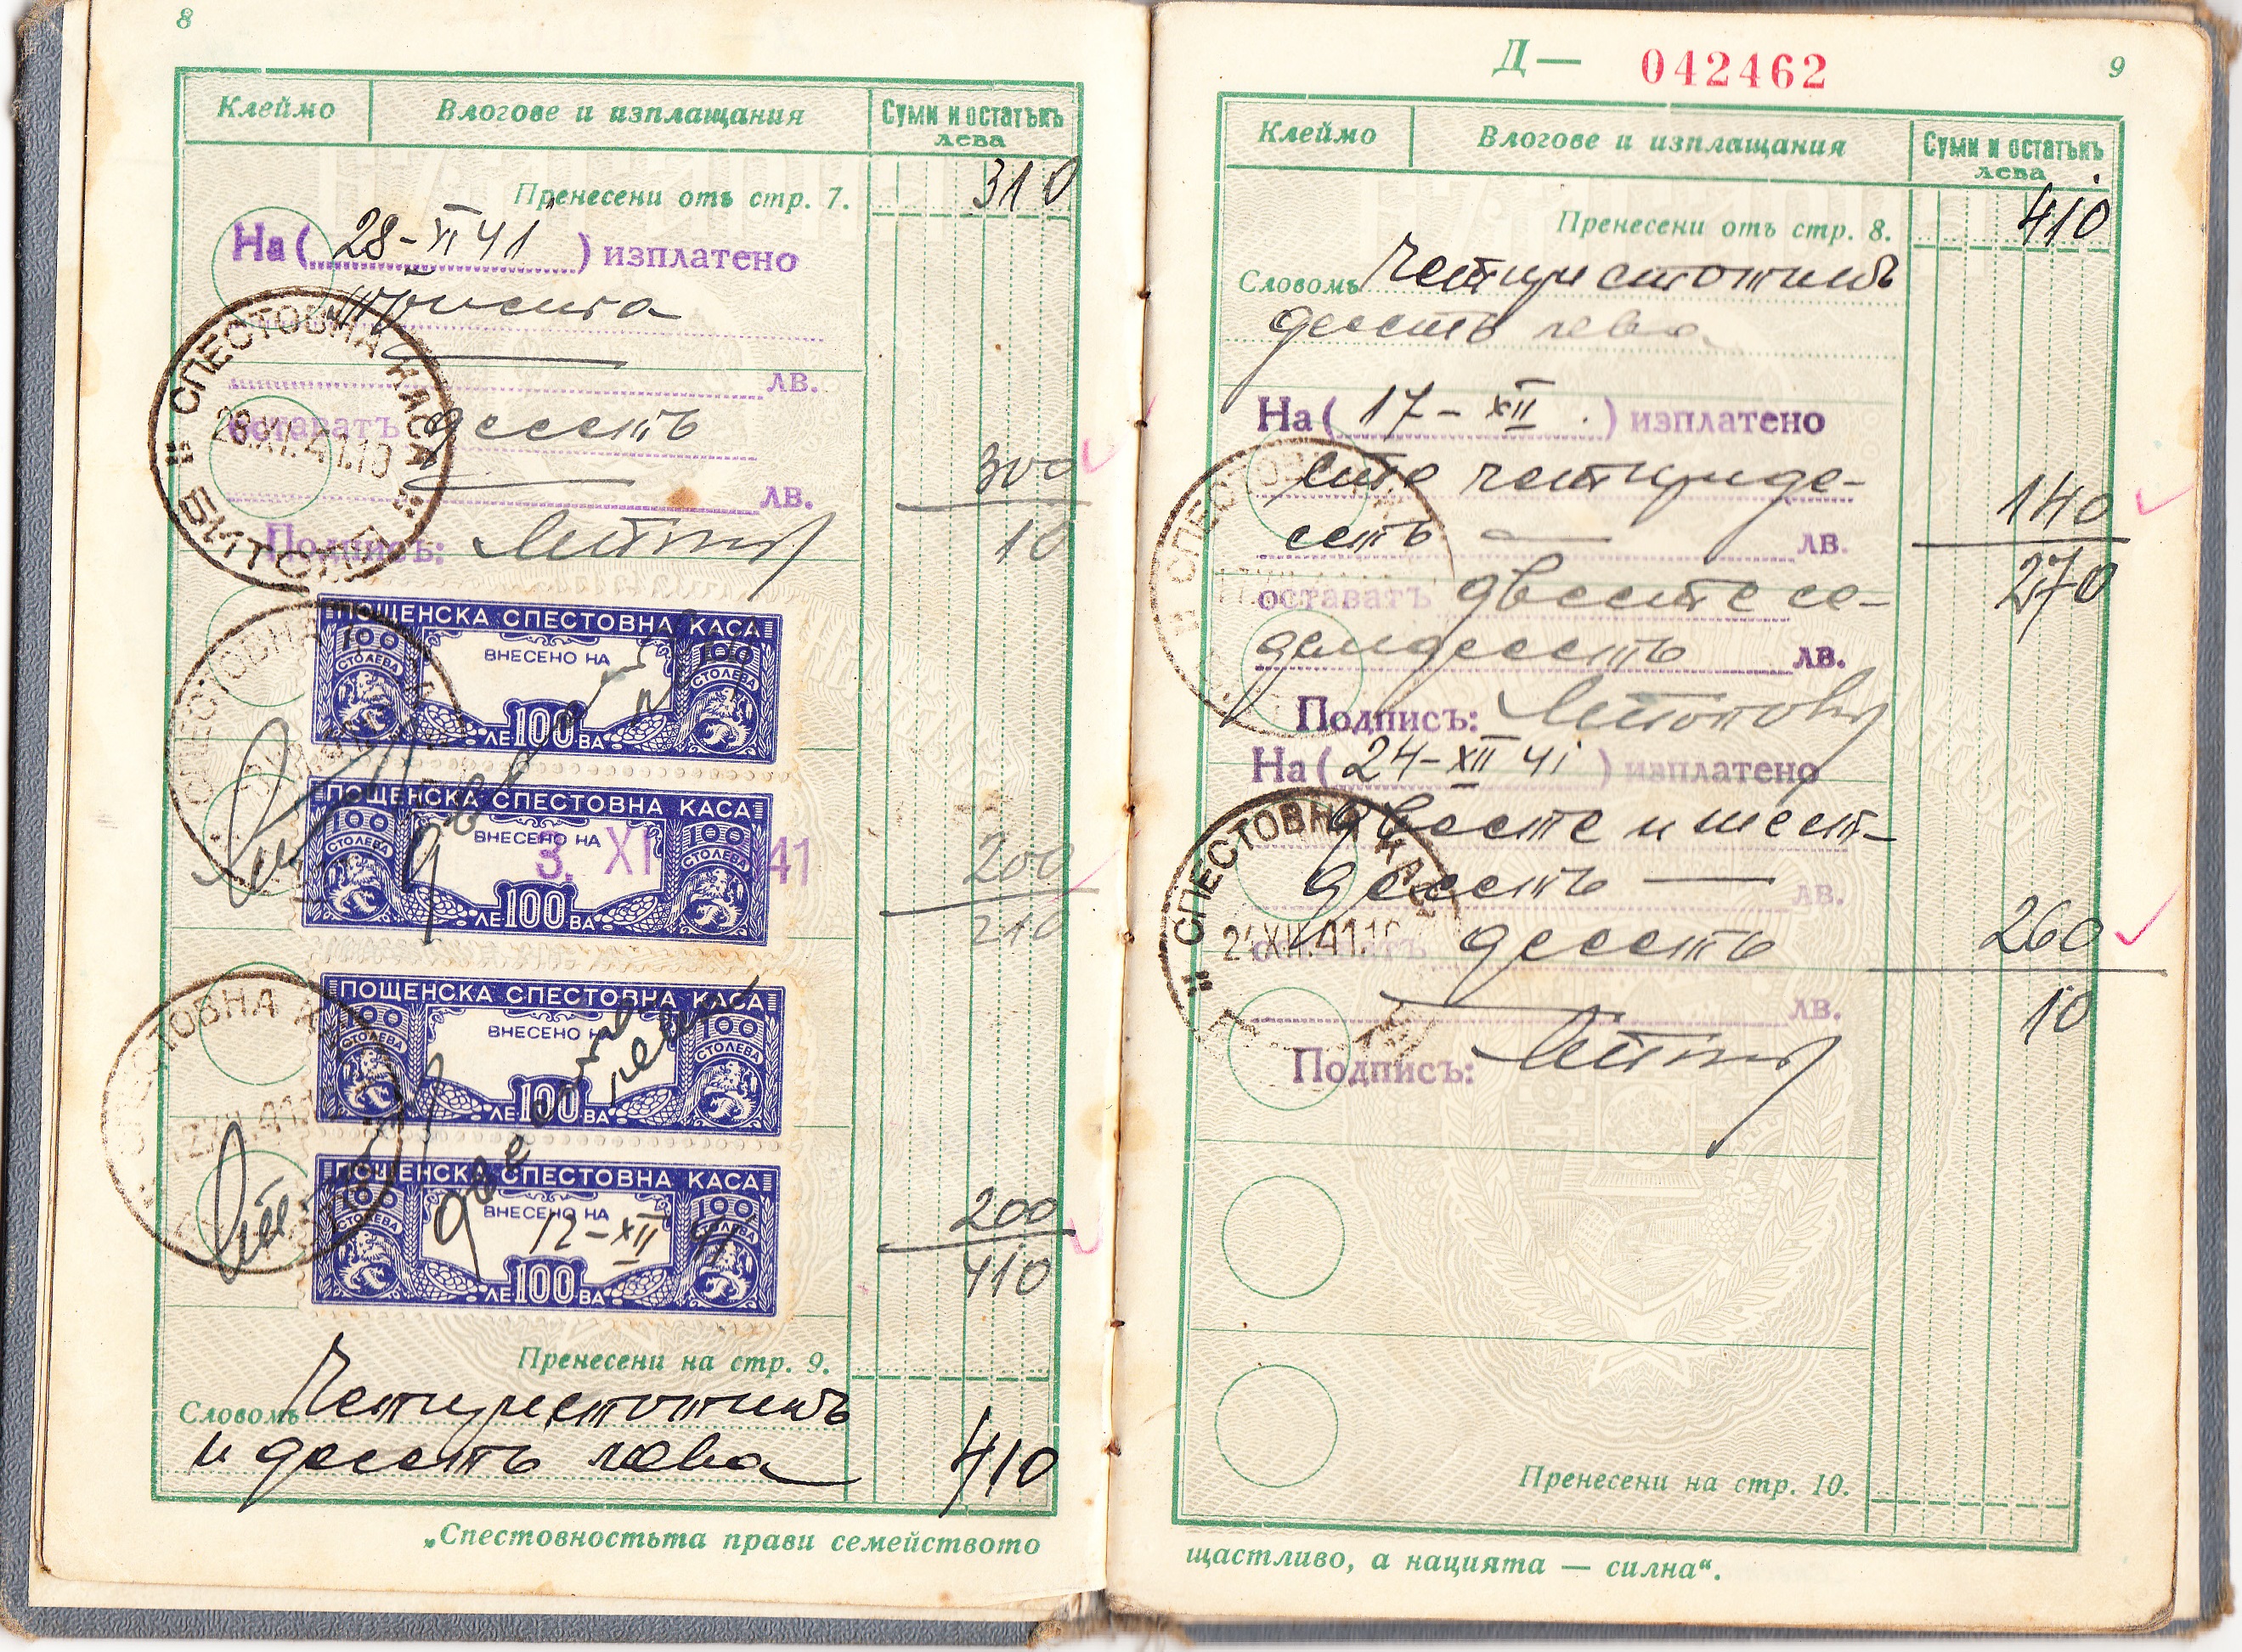 8
Клеймо Влогове и изплащания Суми и остатъкъ лева
Пренесени отъ стр. 7. 310
На ( 28-XI 41 ) изплатено
триста
лв.
остават десеть
300
лв.
10
Подпись:
СПЕСТОВНА КАСА
БИТОЛЯ
28.XI.41.10
ПОЩЕНСКА СПЕСТОВНА КАСА
100 СТОЛЕВА ВНЕСЕНО НА 100 СТОЛЕВА
ЛЕ 100 ВА
ПОЩЕНСКА СПЕСТОВНА КАСА
100 СТОЛЕВА ВНЕСЕНО НА 100 СТОЛЕВА
3. XI 41
ЛЕ 100 ВА
двесте лева
200
210
ПОЩЕНСКА СПЕСТОВНА КАСА
100 СТОЛЕВА ВНЕСЕНО НА 100 СТОЛЕВА
ЛЕ 100 ВА
ПОЩЕНСКА СПЕСТОВНА КАСА
100 СТОЛЕВА ВНЕСЕНО НА 100 СТОЛЕВА
12-XII 41
ЛЕ 100 ВА
двесте лева
200
410
Пренесени на стр. 9.
Словомъ Четиристотинъ
и десеть лева 410
„Спестовностьта прави семейството
Д— 042462 9
Клеймо Влогове и изплащания Суми и остатъкъ лева
Пренесени отъ стр. 8. 410
Словомъ Четиристотинъ
десеть лева
На ( 17-XII ) изплатено
сто четириде-
140
сеть лв.
остават двесте се-
270
демдесеть лв.
Подпись:
На ( 24-XII 41 ) изплатено
двесте и шест-
десеть лв.
260
остават десеть
лв.
10
Подпись:
СПЕСТОВНА КАСА
24.XII.41.10
Пренесени на стр. 10.
щастливо, а нацията — силна“.